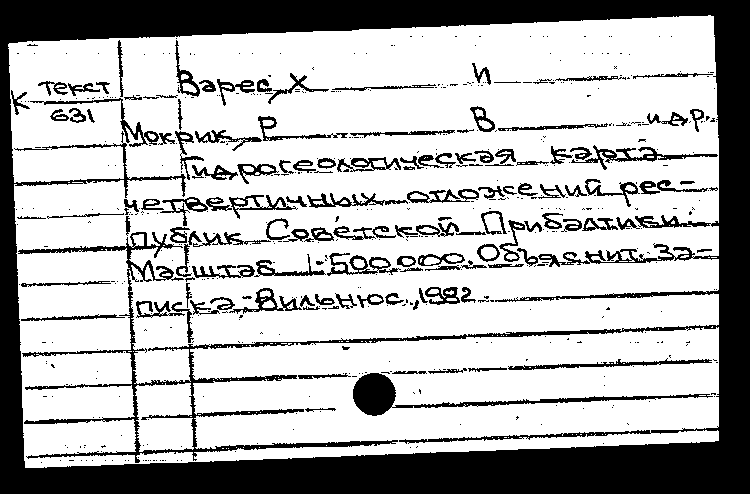 К текст 631
Варес, Х И
Мокрик, Р В и др.
Гидрогеологическая карта
четвертичных отложений рес-
публик Советской Прибалтики.
Масштаб 1:500.000. Объяснит. за-
писка.-Вильнюс, 1982.